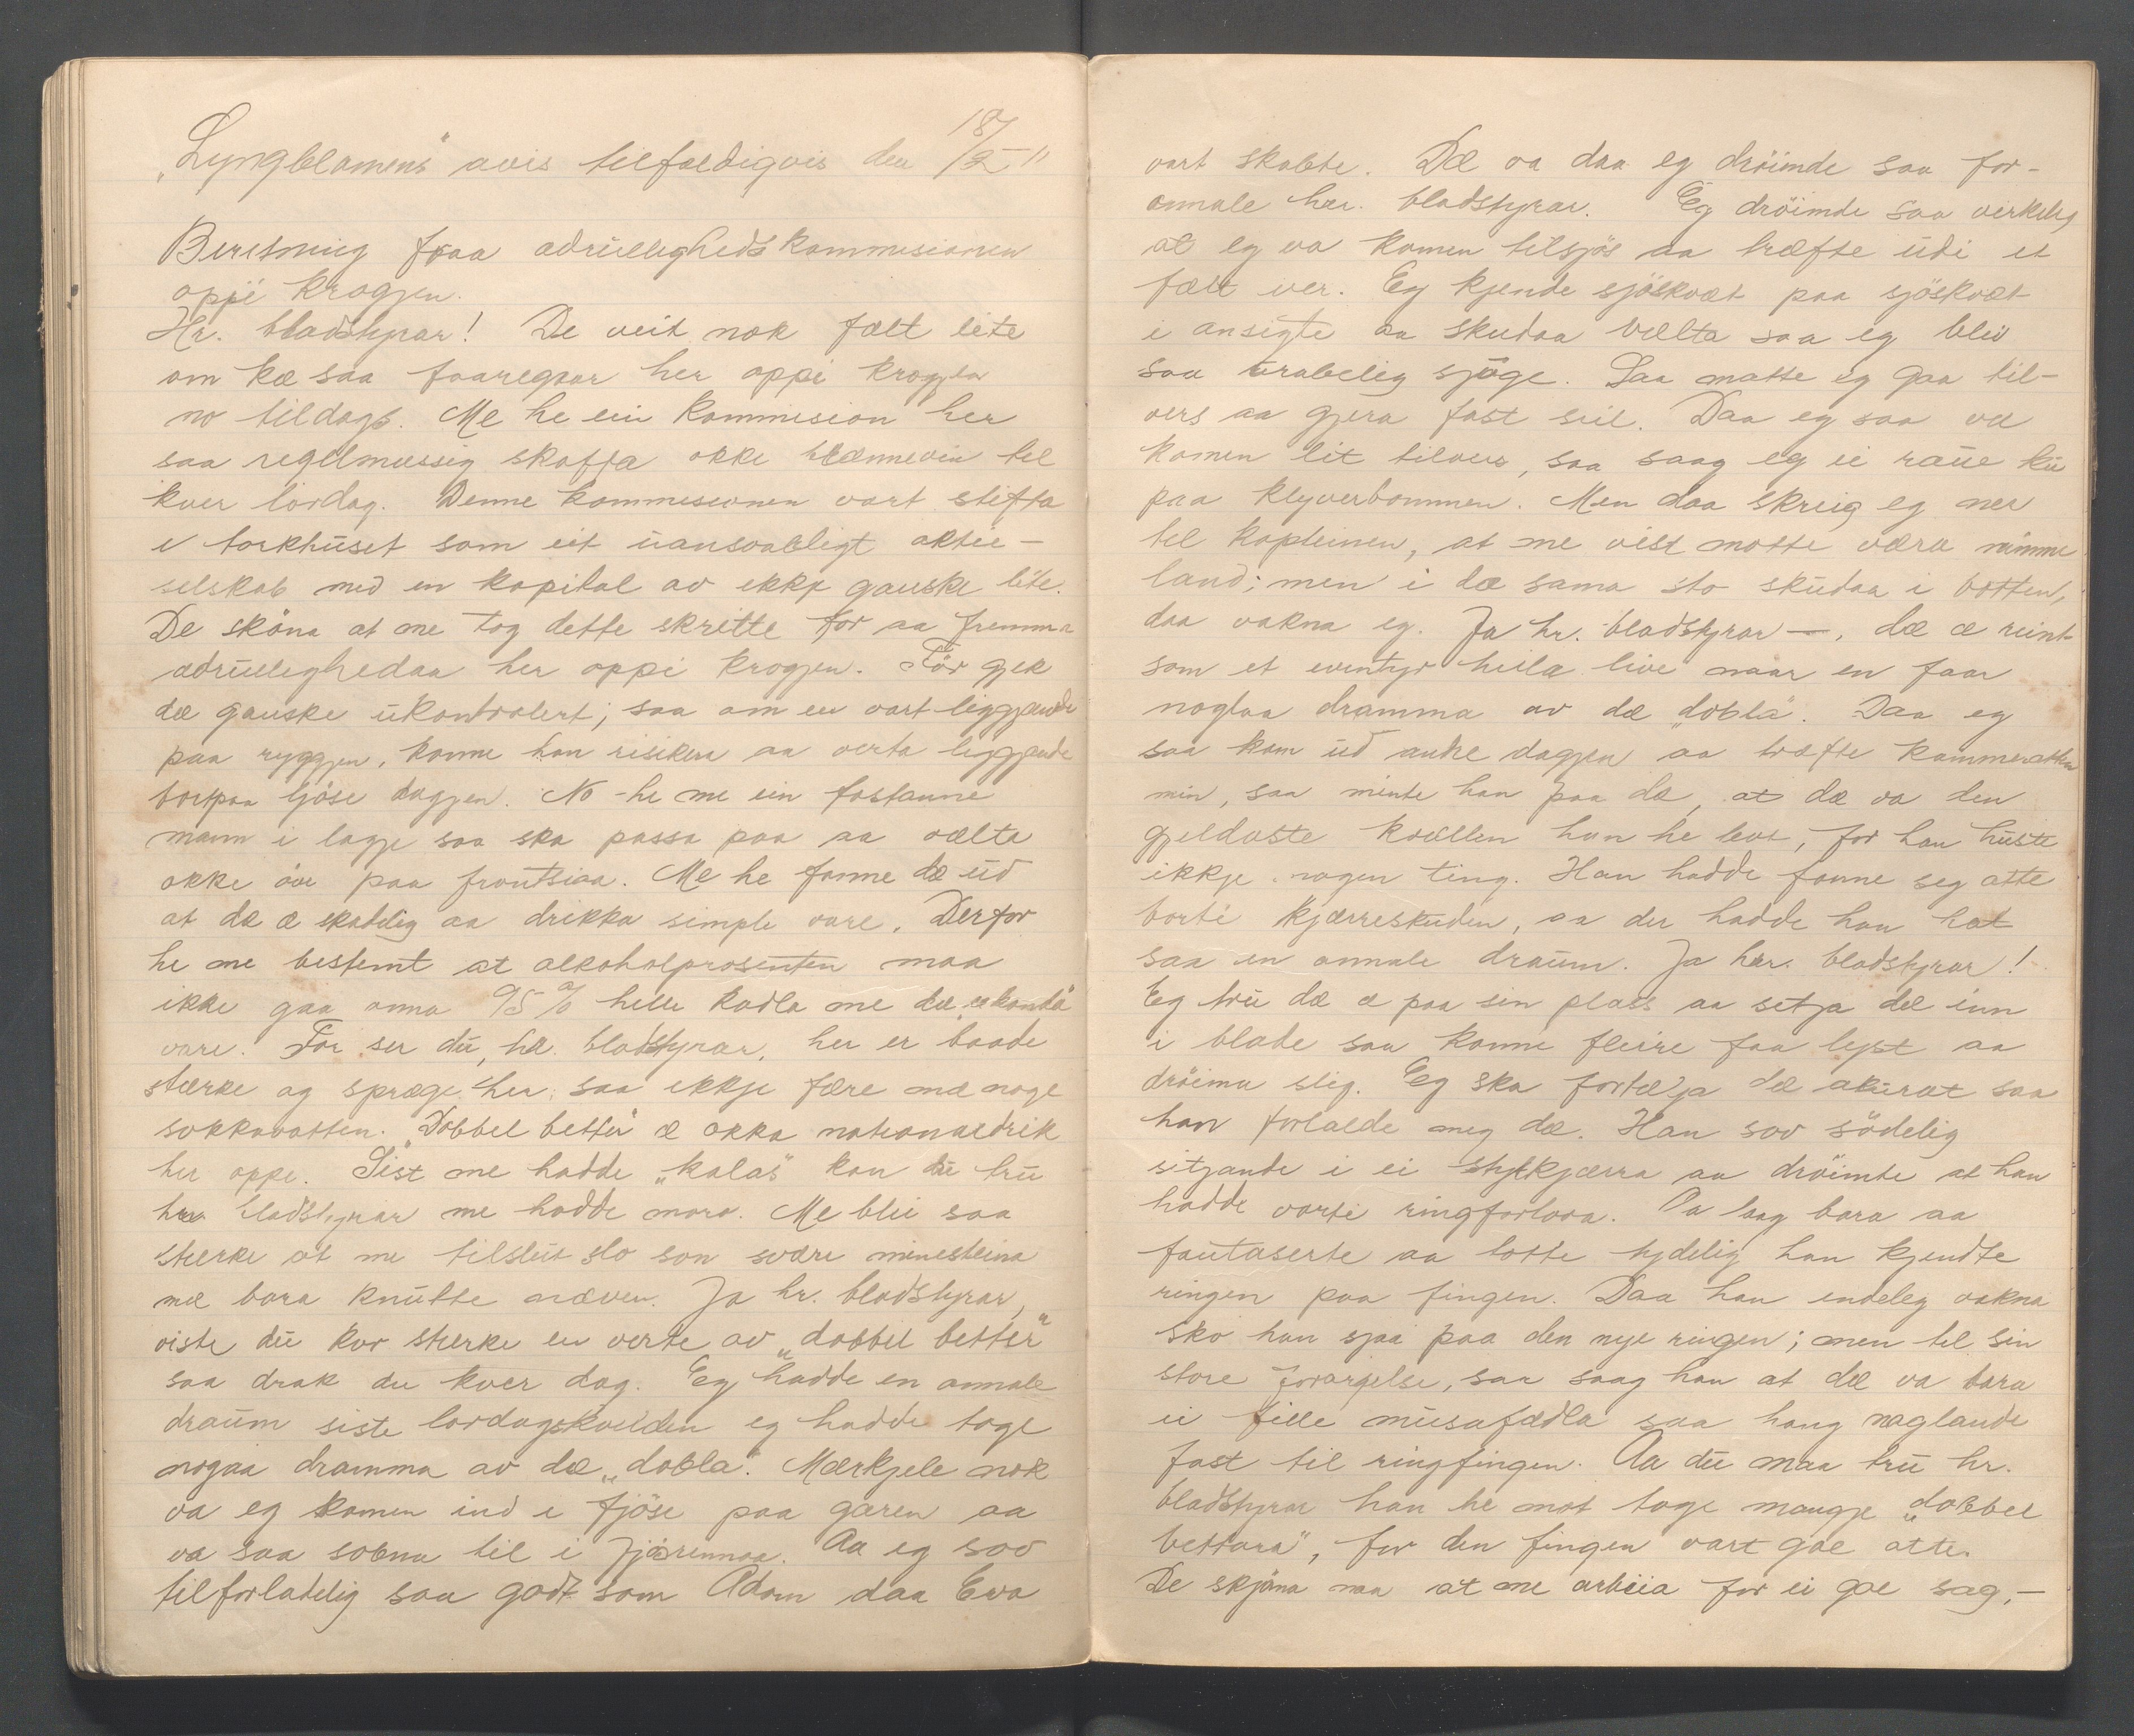 „Lyngblomens" avis tilfældigvis den 18/2-11
Beretning fraa ædrueligheds kommisionen
oppi krogjen.
Hr. bladstyrar! De veit nok fælt lite
om kæ saa foaregaar her oppi krogjen
no tildags. Me he ein kommision her
saa regelmessig skaffa okke brænnevin til
kver lördag. Denne kommisionen vart stifta
i torkhuset som eit uansvabligt aktie-
selskab med en kapital av ikkje ganske lite.
De sköna at me tog dette skritte for aa fremma
ædrueligheda her oppi krogjen. För gjek
dæ ganske ukontrolert; saa om en vart liggjande
paa ryggjen, konne han risikera aa verta liggjende
bortpaa ljöse dagjen. No he me ein fastanne
mann i lagje saa ska passa paa aa vælta
okke öve paa frontsiaa. Me he fonne dæ ud
at dæ æ skadelig aa drikka simple vare. Derfor
he me bestemt at alkoholprosenten maa
ikke gaa onna 95 % helle kadla me dæ „skanda"
vare. For ser du, hr. bladstyrar, her er baade
stærke og spræge her, saa ikkje fære mæ noge
sokkavatten. „Dobbel better" æ okka nationaldrik
her oppe. Sist me hadde „kalas" kan du tru
hr. bladstyrar me hadde moro. Me blei saa
stærke at me tilslut slo son svære minesteina
mæ bara knutte næven. Ja hr. bladstyrar,
viste du kor stærke en verte av „dobbel better"
saa drak du kver dag. Eg hadde en onnale
draum siste lordagskvelden eg hadde toge
nogaa dramma av dæ „dobla". Mærkjele nok
va eg komen ind i fjöse paa garen aa
va saa sobna til i fjösrennaa. Aa eg sov
tilforladelig saa godt som Adam daa Eva
vart skabte. Dæ va daa eg dröimde saa for-
onnale her. bladstyrar. Eg dröimde saa verkeleg
at eg va komen tilsjös aa træfte udi et
fælt ver. Eg kjende sjöskvæt paa sjöskvæt
i ansigte aa skudaa vælta saa eg blei
saa urabelig sjöge. Saa matte eg gaa til-
vers aa gjera fast seil. Daa eg saa va
komen lit tilvers, saa saag eg ei raue ku
paa klyverbommen. Men daa skreig eg ner
til kapteinen, at me vist motte væra nimme
land; men i dæ sama sto skudaa i botten,
daa vakna eg. Ja hr. bladstyrar —, dæ æ reint
som et eventyr heila live naar en faar
noglaa dramma av dæ „dobla". Daa eg
saa kom ud andre dagjen aa træfte kammeraten
min, saa minte han paa dæ, at dæ va den
gjeldaste kvællen han he levt, for han huste
ikkje nogen ting. Han hadde fonne seg atte
borti kjærreskuden, aa der hadde han hat
saa en onnale draum. Ja her. bladstyrar!
Eg tru dæ æ paa sin plass aa setja dæ inn
i blade saa konne fleire faa lyst aa
dröima slig. Eg ska fortælja dæ akurat saa
han fortalde meg dæ. Han sov södelig
sitjande i ei stylkjærra aa dröimte at han
hadde vorti ringforlova. Aa laag bara aa
fantaserte aa totte tydelig han kjendte
ringen paa fingen. Daa han endeleg vakna
sko han sjaa paa den nye ringen; men til sin
store forargelse, saa saag han at dæ va bara
ei fille musafædla saa hang naglande
fast til ringfingen. Aa du maa tru hr.
bladstyrar han he mot toge mangje „dobbel
bettara", for den fingen vart goe atte.
De skjöna naa at me arbeia for ei goe sag, —